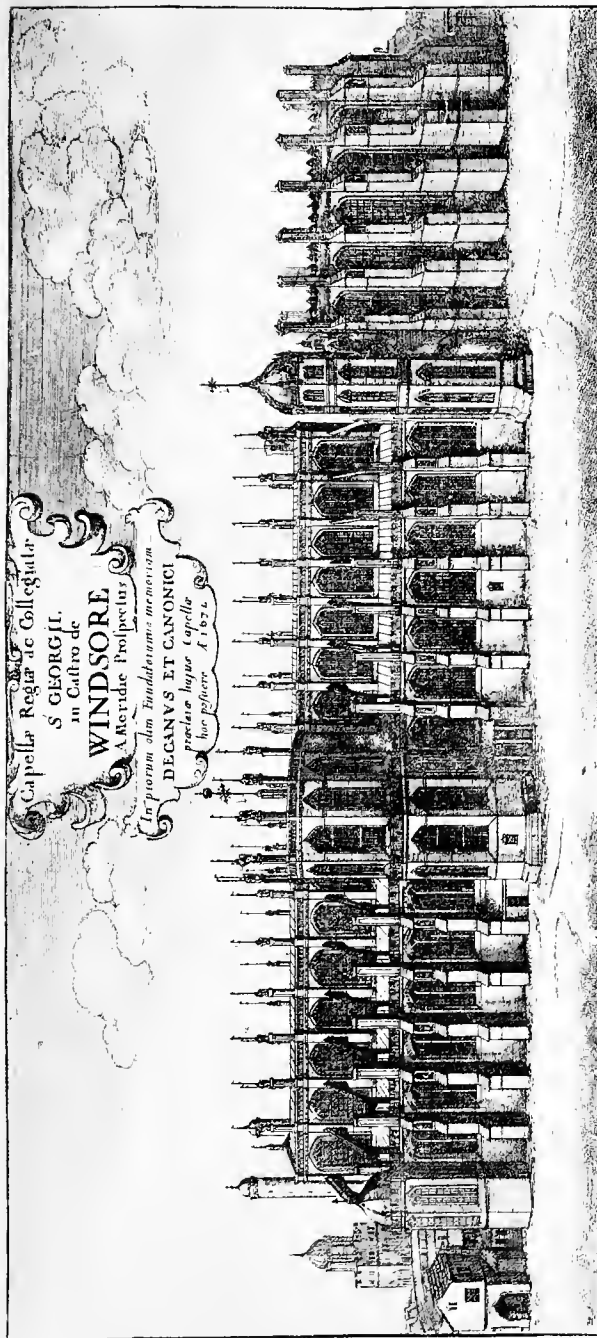 Capellæ Regiæ ac Collegiatæ
S. GEORGII.
in Castro de
WINDSORE
A Meridie Prospectus
In piorum olim Fundatorum memoriam
DECANVS ET CANONICI
præclaræ hujus Capellæ
hoc posuere A 1672